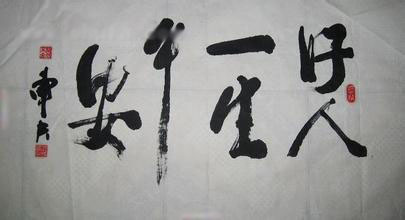 好人
一生
平
安